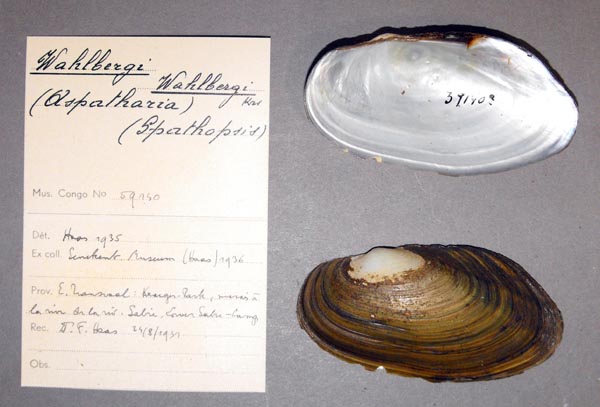 Wahlbergi
Wahlbergi
(Aspatharia) Kra
(Spathopsis)
Mus. Congo No 59.140
Dét. Haas 1935
Ex coll. Senckenb. Museum (Haas) 1936
Prov. E. Transvaal: Kruger-Park, marais à
la rive de la riv. Sabie, Lower Sabie-Camp
Rec. Dr. F. Haas 24/8/1931
Obs.